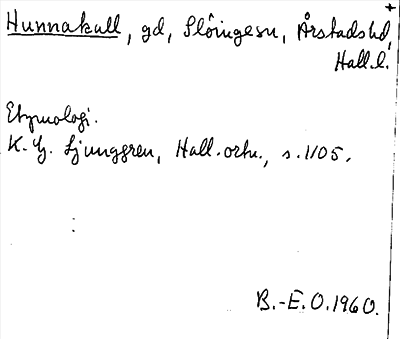 Hunnakull, gd, Slöinge sn, Årstads hd,
Hall. l.
Etymologi.
K. G. Ljunggren, Hall. ortn., s. 105.
B.-E. O. 1960.